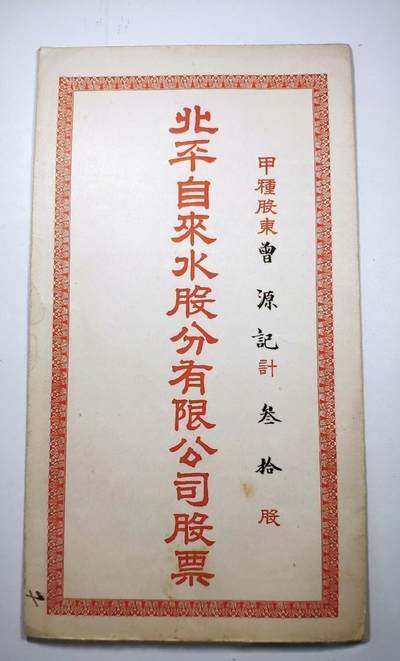 甲種股東曾源記計叁拾股
北平自來水股分有限公司股票